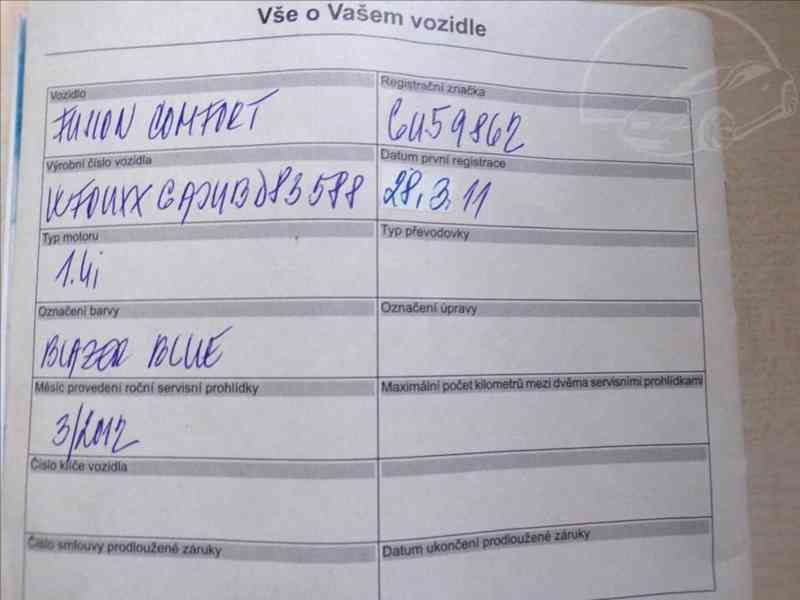 Vše o Vašem vozidle
Vozidlo
Registrační značka
FUSION COMFORT
6U59862
Výrobní číslo vozidla
Datum první registrace
28.3.11
Typ motoru
Typ převodovky
1.4i
Označení barvy
Označení úpravy
BLAZER BLUE
Měsíc provedení roční servisní prohlídky
Maximální počet kilometrů mezi dvěma servisními prohlídkami
3/2012
Číslo klíče vozidla
Číslo smlouvy prodloužené záruky
Datum ukončení prodloužené záruky